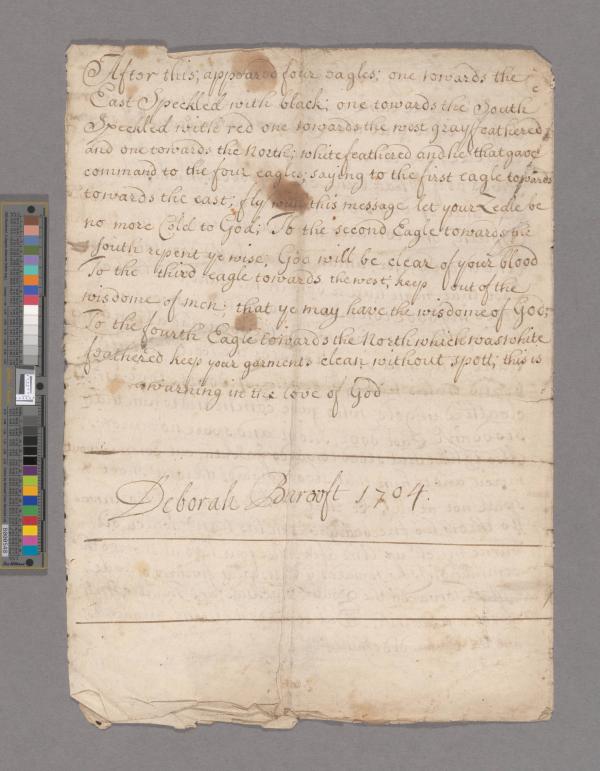 After this; appeared four eagles; one towards the
East Speckled with black; one towards the South
Speckled with red one towards the west gray feathered;
and one towards the North; white feathered and he that gave
command to the four eagles; saying to the first eagle towards
towards the east; fly with this message let your Zeale be
no more Cold to God; To the second Eagle towards the
South repent ye wise; God will be clear of your blood
To the third eagle towards the west; keep out of the
wisdome of men; that ye may have the wisdome of God;
To the fourth Eagle towards the North which was white
feathered keep your garments clean without spott; this is
a warning in the love of God
Deborah Barooft 1704.